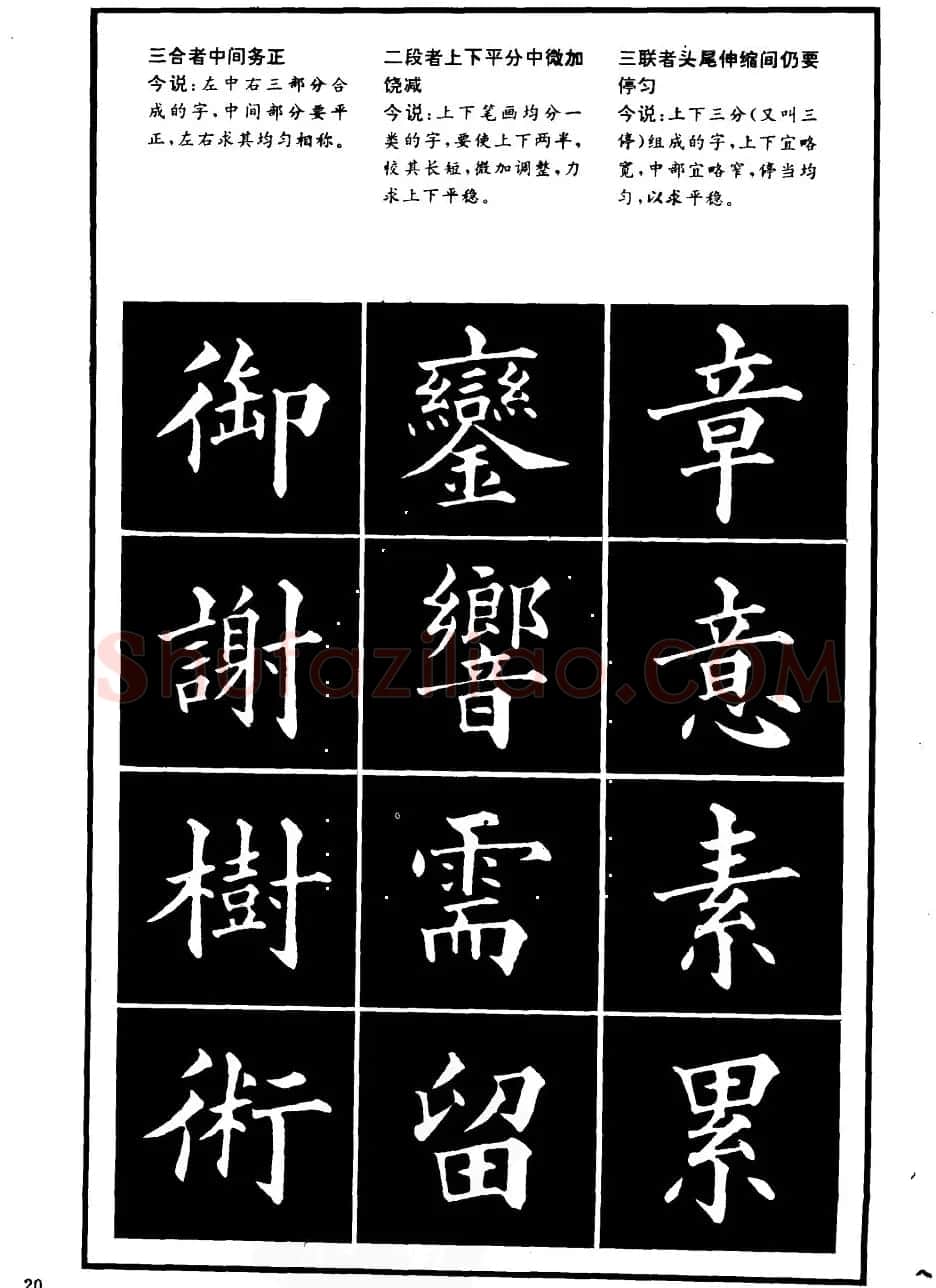 三合者中间务正
今说:左中右三部分合
成的字,中间部分要平
正,左右求其均匀相称。
二段者上下平分中微加
饶减
今说:上下笔画均分一
类的字,要使上下两半,
恔其长短,微加调整,力
求上下平稳。
三联者头尾伸缩间仍要
停匀
今说:上下三分(又叫三
停)组成的字,上下宜略
宽,中部宜略窄,停当均
匀,以求平稳。
御 鑾 章
謝 響 意
樹 需 素
術 留 累
Shufaziliao.COM
20